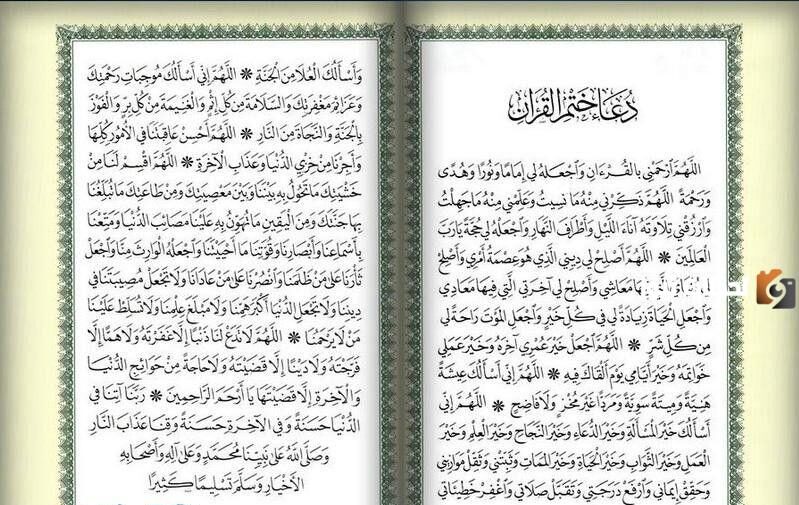 دُعَاءُ خَتْمِ الْقُرْآنِ
اللَّهُمَّ ارْحَمْنِي بِالْقُرْءَانِ وَاجْعَلْهُ لِي إِمَامًا وَنُورًا وَهُدًى
وَرَحْمَةً اللَّهُمَّ ذَكِّرْنِي مِنْهُ مَا نَسِيتُ وَعَلِّمْنِي مِنْهُ مَا جَهِلْتُ
وَارْزُقْنِي تِلَاوَتَهُ آنَاءَ اللَّيْلِ وَأَطْرَافَ النَّهَارِ وَاجْعَلْهُ لِي حُجَّةً يَارَبَّ
الْعَالَمِينَ * اللَّهُمَّ أَصْلِحْ لِي دِينِي الَّذِي هُوَ عِصْمَةُ أَمْرِي وَأَصْلِحْ
لِي مَعَاشِي وَأَصْلِحْ لِي آخِرَتِي الَّتِي فِيهَا مَعَادِي
وَاجْعَلِ الْحَيَاةَ زِيَادَةً لِي فِي كُلِّ خَيْرٍ وَاجْعَلِ الْمَوْتَ رَاحَةً لِي
مِنْ كُلِّ شَرٍّ * اللَّهُمَّ اجْعَلْ خَيْرَ عُمْرِي آخِرَهُ وَخَيْرَ عَمَلِي
خَوَاتِمَهُ وَخَيْرَ أَيَّامِي يَوْمَ أَلْقَاكَ فِيهِ * اللَّهُمَّ إِنِّي أَسْأَلُكَ عِيشَةً
هَنِيَّةً وَمِيتَةً سَوِيَّةً وَمَرَدًّا غَيْرَ مُخْزٍ وَلَا فَاضِحٍ * اللَّهُمَّ إِنِّي
أَسْأَلُكَ خَيْرَ الْمَسْأَلَةِ وَخَيْرَ الدُّعَاءِ وَخَيْرَ النَّجَاحِ وَخَيْرَ الْعِلْمِ وَخَيْرَ
الْعَمَلِ وَخَيْرَ الثَّوَابِ وَخَيْرَ الْحَيَاةِ وَخَيْرَ الْمَمَاتِ وَثَبِّتْنِي وَثَقِّلْ مَوَازِينِي
وَحَقِّقْ إِيمَانِي وَارْفَعْ دَرَجَتِي وَتَقَبَّلْ صَلَاتِي وَاغْفِرْ خَطِيئَاتِي
وَأَسْأَلُكَ الْعُلَا مِنَ الْجَنَّةِ * اللَّهُمَّ إِنِّي أَسْأَلُكَ مُوجِبَاتِ رَحْمَتِكَ
وَعَزَائِمَ مَغْفِرَتِكَ وَالسَّلَامَةَ مِنْ كُلِّ إِثْمٍ وَالْغَنِيمَةَ مِنْ كُلِّ بِرٍّ وَالْفَوْزَ
بِالْجَنَّةِ وَالنَّجَاةَ مِنَ النَّارِ * اللَّهُمَّ أَحْسِنْ عَاقِبَتَنَا فِي الْأُمُورِ كُلِّهَا
وَأَجِرْنَا مِنْ خِزْيِ الدُّنْيَا وَعَذَابِ الْآخِرَةِ * اللَّهُمَّ اقْسِمْ لَنَا مِنْ
خَشْيَتِكَ مَا تَحُولُ بِهِ بَيْنَنَا وَبَيْنَ مَعْصِيَتِكَ وَمِنْ طَاعَتِكَ مَا تُبَلِّغُنَا
بِهَا جَنَّتَكَ وَمِنَ الْيَقِينِ مَا تُهَوِّنُ بِهِ عَلَيْنَا مَصَائِبَ الدُّنْيَا وَمَتِّعْنَا
بِأَسْمَاعِنَا وَأَبْصَارِنَا وَقُوَّتِنَا مَا أَحْيَيْتَنَا وَاجْعَلْهُ الْوَارِثَ مِنَّا وَاجْعَلْ
ثَأْرَنَا عَلَى مَنْ ظَلَمَنَا وَانْصُرْنَا عَلَى مَنْ عَادَانَا وَلَا تَجْعَلْ مُصِيبَتَنَا فِي
دِينِنَا وَلَا تَجْعَلِ الدُّنْيَا أَكْبَرَ هَمِّنَا وَلَا مَبْلَغَ عِلْمِنَا وَلَا تُسَلِّطْ عَلَيْنَا
مَنْ لَا يَرْحَمُنَا * اللَّهُمَّ لَا تَدَعْ لَنَا ذَنْبًا إِلَّا غَفَرْتَهُ وَلَا هَمًّا إِلَّا
فَرَّجْتَهُ وَلَا دَيْنًا إِلَّا قَضَيْتَهُ وَلَا حَاجَةً مِنْ حَوَائِجِ الدُّنْيَا
وَالْآخِرَةِ إِلَّا قَضَيْتَهَا يَا أَرْحَمَ الرَّاحِمِينَ * رَبَّنَا آتِنَا فِي
الدُّنْيَا حَسَنَةً وَفِي الْآخِرَةِ حَسَنَةً وَقِنَا عَذَابَ النَّارِ
وَصَلَّى اللَّهُ عَلَى نَبِيِّنَا مُحَمَّدٍ وَعَلَى آلِهِ وَأَصْحَابِهِ
الْأَخْيَارِ وَسَلَّمَ تَسْلِيمًا كَثِيرًا